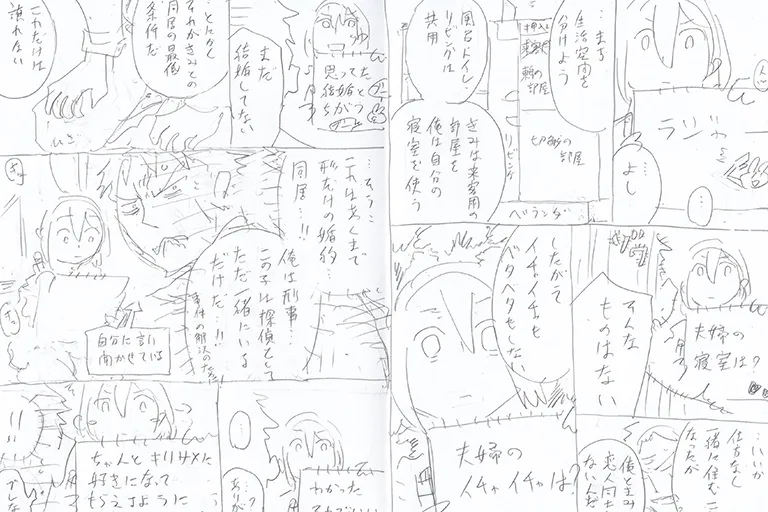 …まず
生活空間を
分けよう
ラジャ
…よし
風呂トイレ
リビングは
共用
押入れ
頼の
部屋
切鮫の
部屋
リビング
ベランダ
きみは来客用の
部屋を
俺は自分の
寝室を使う
夫婦の
寝室は?
そんな
ものはない
したがって
イチャイチャも
ベタベタもしない
…いいか
仕方なし
一緒に住む
なったが
俺ときみ
恋人同士
ないんだ
夫婦の
イチャイチャは?
思ってた
結婚と
ちがう
まだ
結婚してない
…とにかく
それがきみとの
同居の最低
条件だ
これだけは
譲れない
…そうこ
これはあくまで
形だけの婚約…
同居…!!
俺は刑事…
この子は探偵として
ただ一緒にいる
だけだ…!!
事件の解決のため
自分に言い
聞かせている
わかった
それでいい
…?
ありが
ちゃんとキリサメに
好きになって
もらえるように